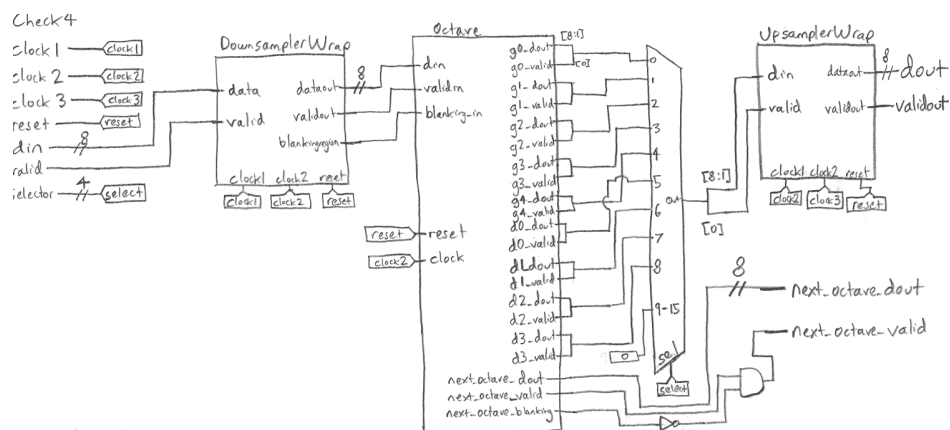 Check4
clock1
clock1
clock 2
clock2
clock 3
clock3
reset
reset
din
8
valid
selector
4
select
DownsamplerWrap
data
valid
dataout
8
validout
blankingregion
clock1 clock2 reset
clock1
clock2
reset
Octave
din
validin
blanking_in
reset
reset
clock2
clock
g0_dout
[8:1]
g0_valid
[0]
g1_dout
g1_valid
g2_dout
g2_valid
g3_dout
g3_valid
g4_dout
g4_valid
d0_dout
d0_valid
d1_dout
d1_valid
d2_dout
d2_valid
d3_dout
d3_valid
next_octave_dout
next_octave_valid
next_octave_blanking
0
1
2
3
4
5
6
7
8
9-15
0
out
sel
select
[8:1]
[0]
UpsamplerWrap
din
valid
dataout
8
dout
validout
validout
clock1 clock2 reset
clock2
clock3
reset
8
next_octave_dout
next_octave_valid